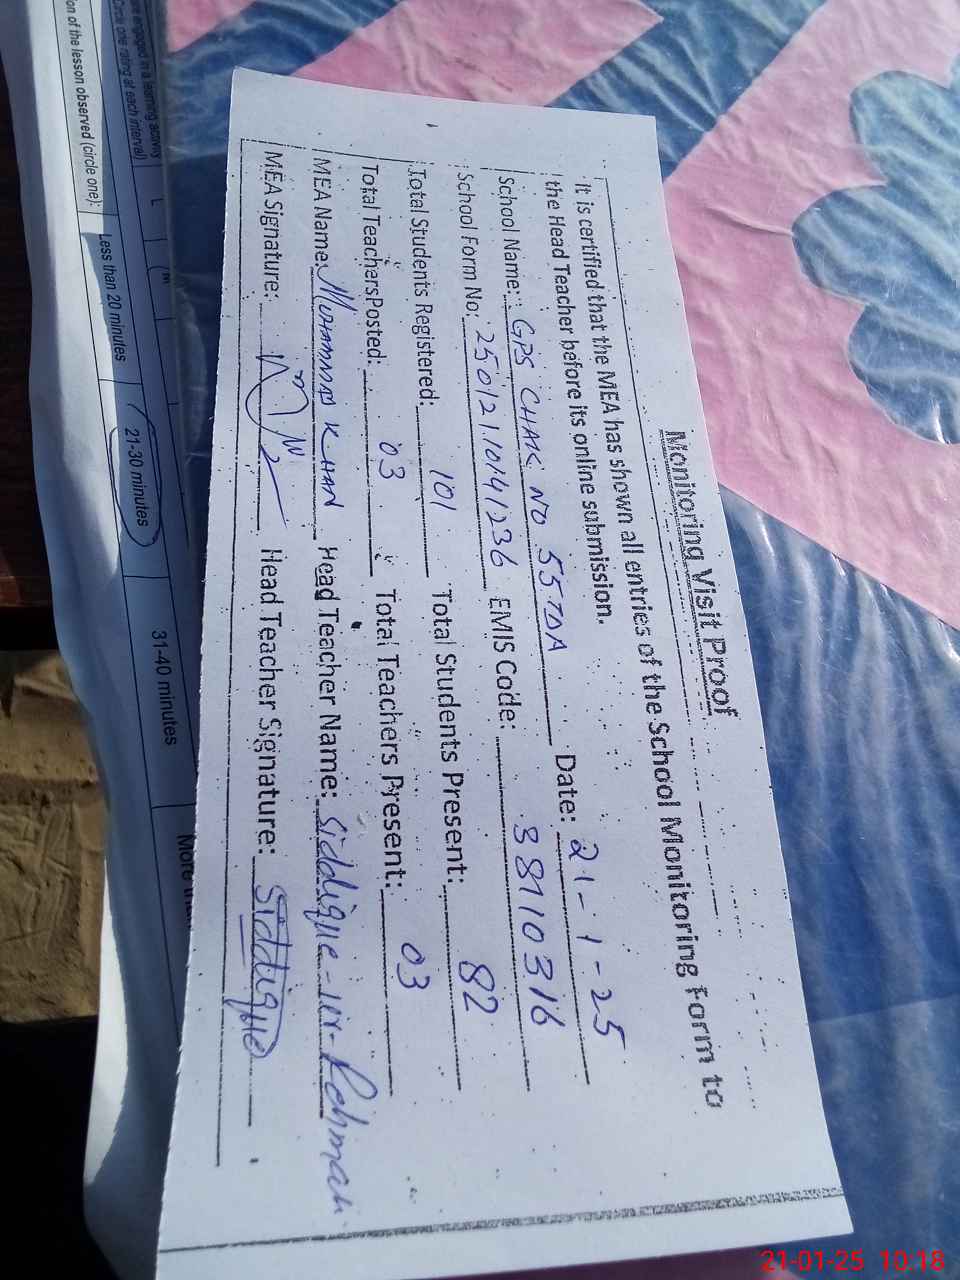 Monitoring Visit Proof
It is certified that the MEA has shown all entries of the School Monitoring Form to
the Head Teacher before its online submission.
School Name: GPS CHAK NO 55 TDA Date: 21-1-25
School Form No: 25012110141236 EMIS Code: 38110316
Total Students Registered: 101 Total Students Present: 82
Total Teachers Posted: 03 Total Teachers Present: 03
MEA Name: MUHAMMAD KHAN Head Teacher Name: Siddique-ur-Rehman
MEA Signature: Head Teacher Signature: Siddique
are engaged in a learning activity
Circle one rating at each interval)
L
M
on of the lesson observed (circle one):
Less than 20 minutes
21-30 minutes
31-40 minutes
More
21-01-25 10:18